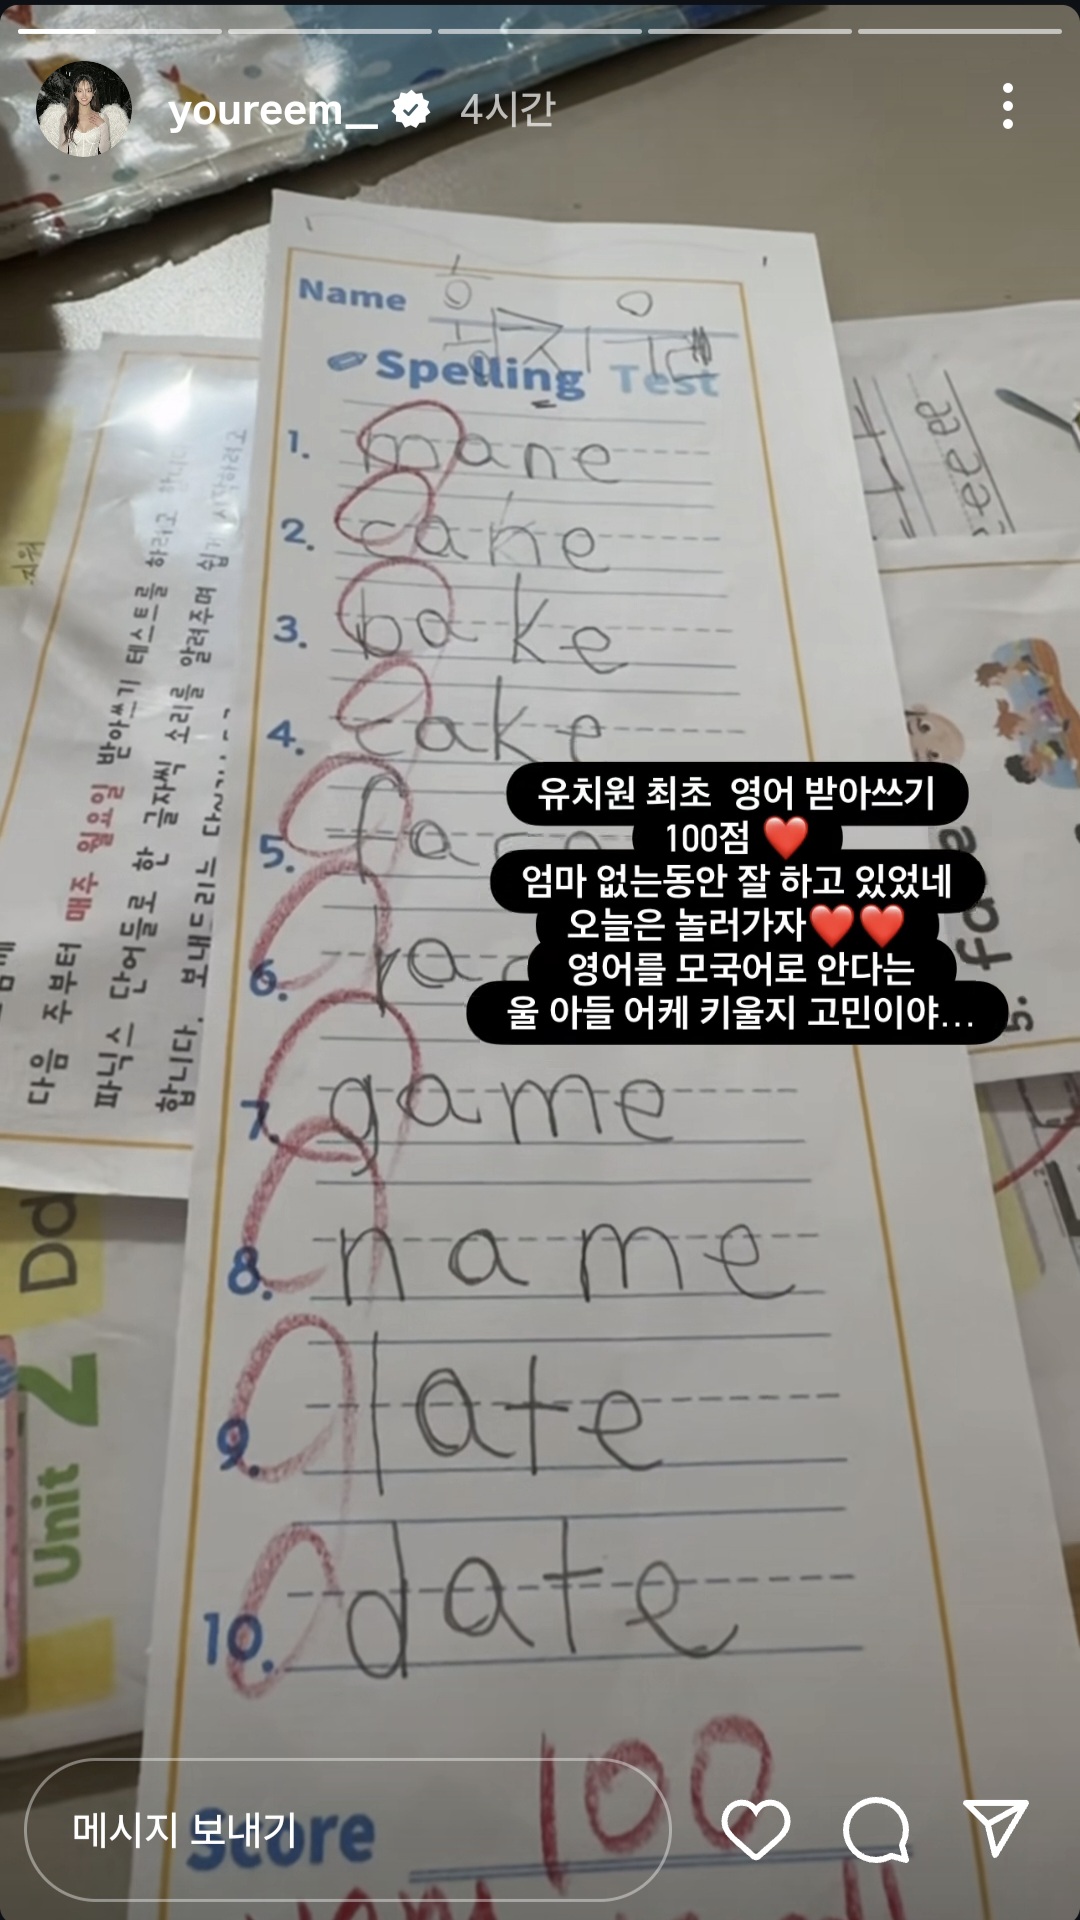 youreem__ 4시간
Name
Spelling Test
1. mane
2. cane
3. bake
4. cake
5.
6.
7. game
8. name
9. late
10. date
Score 100
유치원 최초 영어 받아쓰기
100점 ❤️
엄마 없는동안 잘 하고 있었네
오늘은 놀러가자❤️❤️
영어를 모국어로 안다는
울 아들 어케 키울지 고민이야...
다음 주부터 매주 월요일 받아쓰기 테스트를 하려고 합니다.
파닉스 단어들로 한 글자씩 소리를 알려주며 쉽게 시작하려고
합니다.
Dd
Unit 2
5.
메시지 보내기